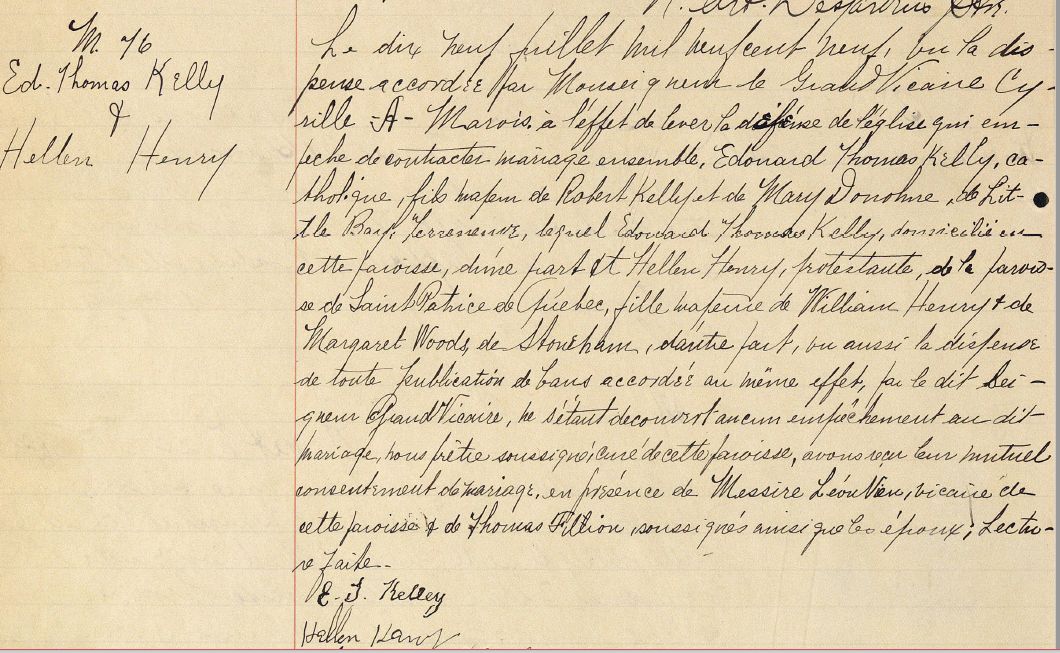 N. Art. Desjardins Ptr.
M. 76
Ed. Thomas Kelly
&
Hellen Henry
Le dix neuf juillet mil neuf cent neuf, vu la dis-
pense accordée par Monseigneur le Grand Vicaire Cy-
rille -A- Marois, à l'effet de lever la défense de l'église qui em-
pêche de contracter mariage ensemble, Edouard Thomas Kelly, ca-
tholique, fils majeur de Robert Kelly et de Mary Donohue, de Lit-
tle Bay, Terreneuve, lequel Edouard Thomas Kelly, domicilié en
cette paroisse, d'une part et Hellen Henry, protestante, de la parois-
se de Saint Patrice de Québec, fille majeure de William Henry & de
Margaret Woods, de Stoneham, d'autre part, vu aussi la dispense
de toute publication de bans accordée au même effet, par le dit Sei-
gneur Grand Vicaire, ne s'étant decouvert aucun empêchement au dit
mariage, nous prêtre soussigné curé de cette paroisse, avons reçu leur mutuel
consentement de mariage, en présence de Messire Léon Vien, vicaire de
cette paroisse & de Thomas Fillion, soussignés ainsi que les époux; Lectu-
re faite.
E. T. Kelley
Hellen Henry